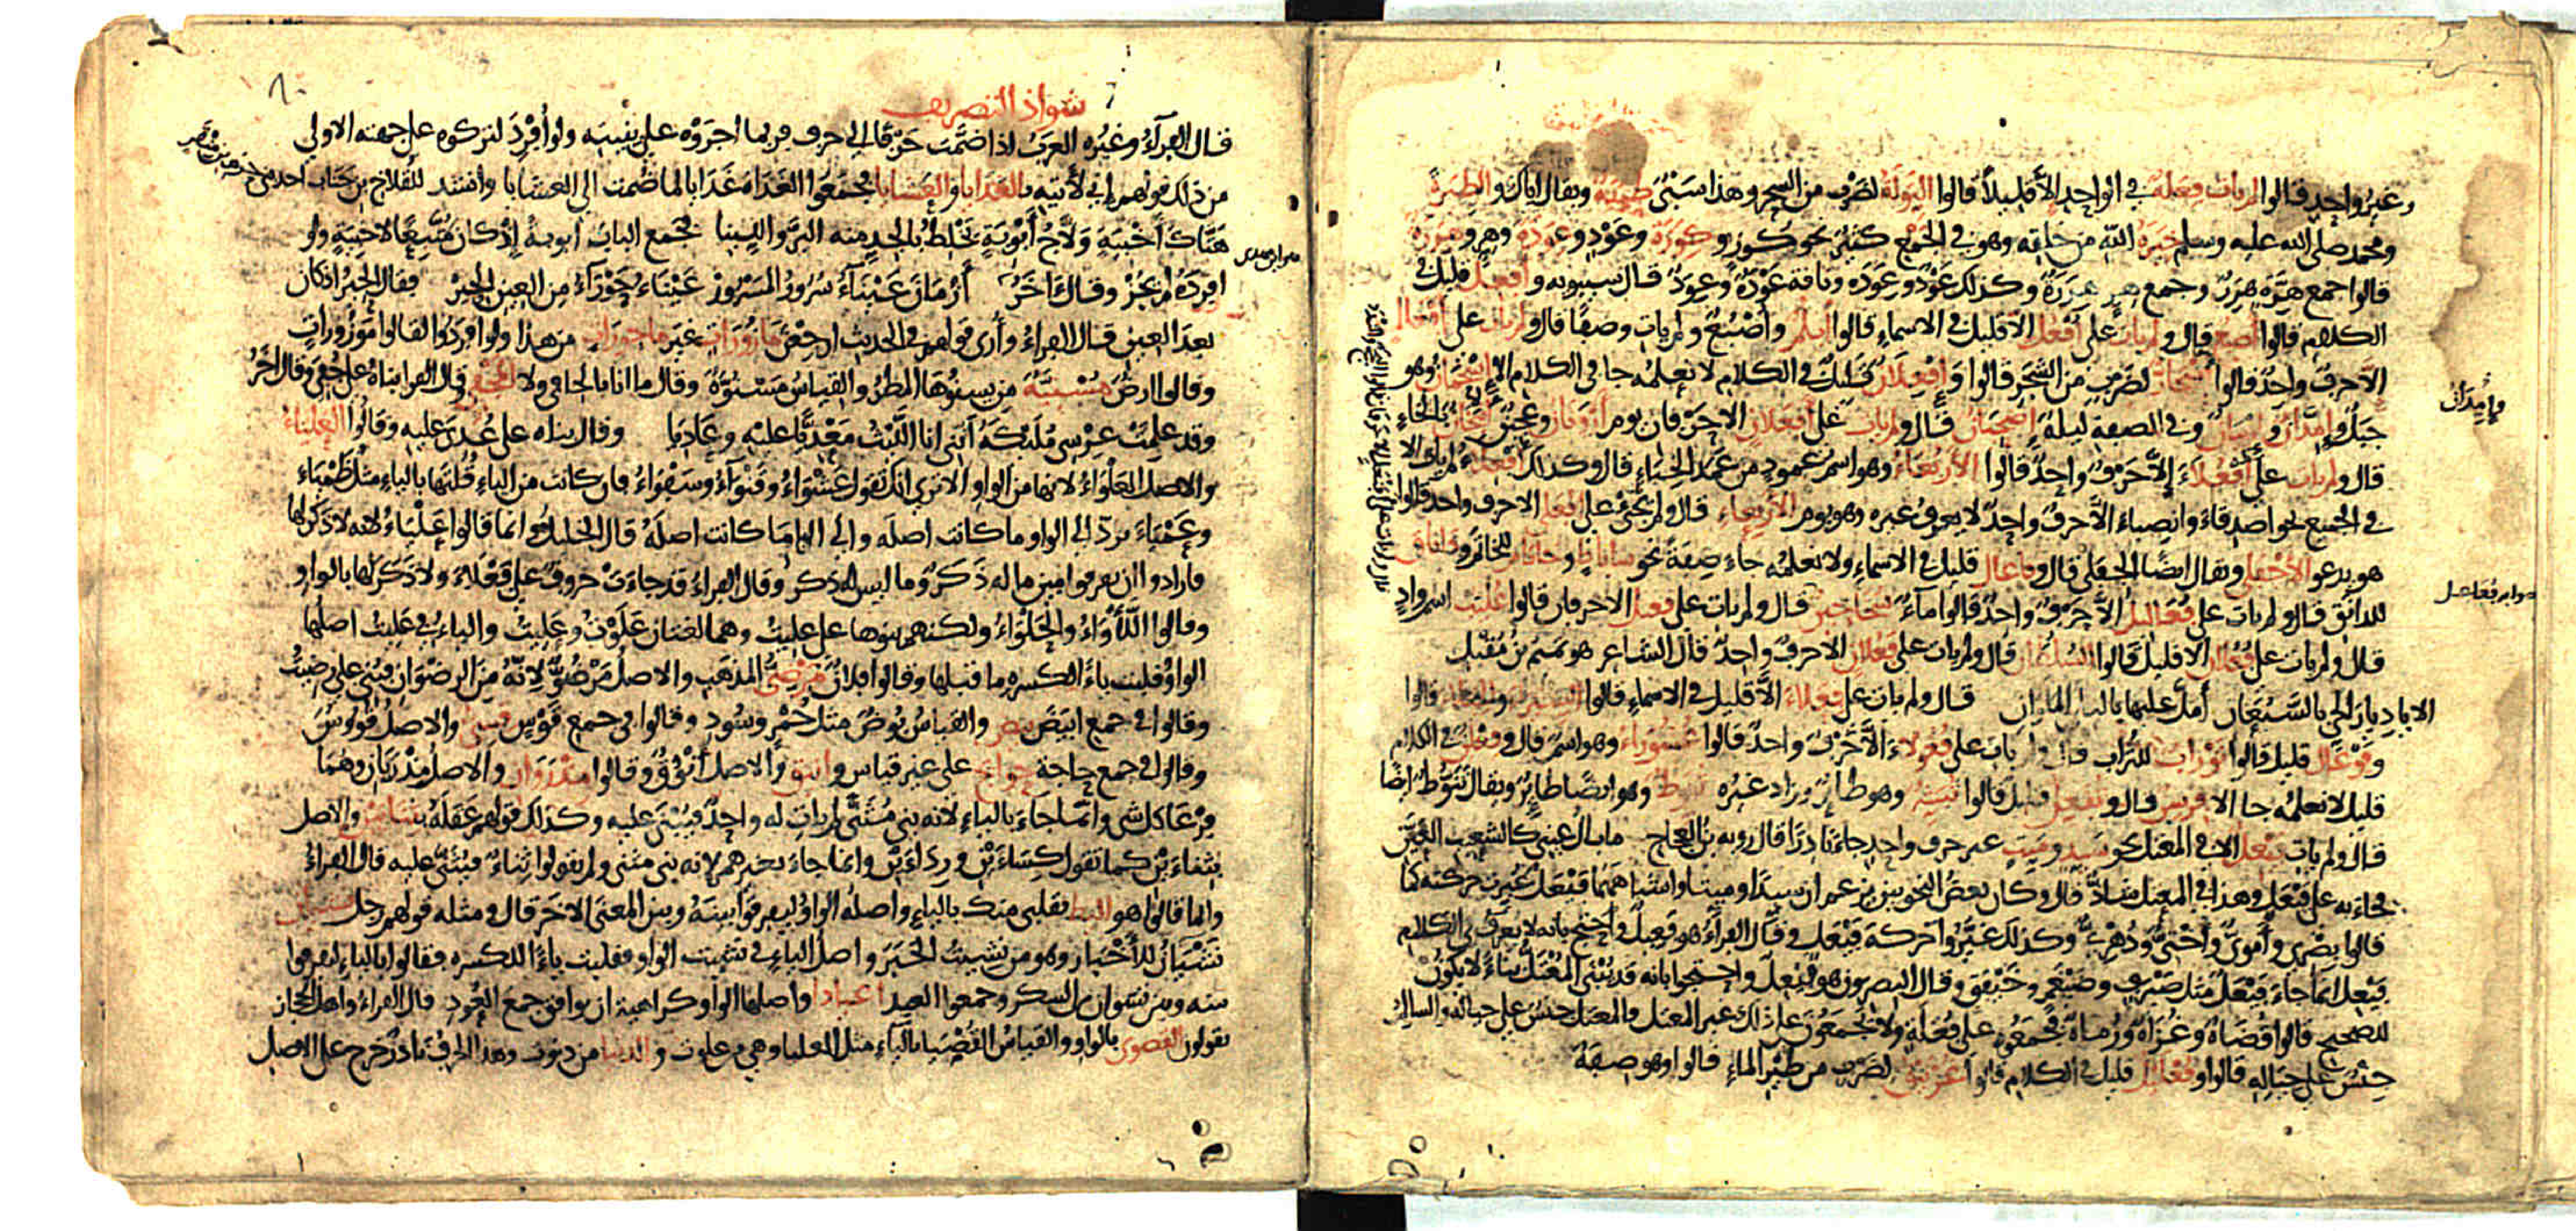 وغير واحد قالوا لم يأت فعلة في الواحد إلا قليلا قالوا التولة لضرب من السحر وهذا سبي طيبة ويقال إياك والطيرة
ومحمد صلى الله عليه وسلم خيرة الله من خلقه وهو في الجمع كثير نحو كوز وكوزة وعود وعودة وهر وهررة
قالوا جمع هرة هرر وجمع هر هررة وكذلك عود وعودة وناقة عودة وعود قال سيبويه وأفعل قليل في
الكلام قالوا أصبع قال ولم يأت على أفعل إلا قليل في الأسماء قالوا أبلم وأصبع ولم يأت وصفا قال ولم يأت على أفعال
إلا حرف واحد قالوا لضرب من الشجر قالوا وإفعلان قليل في الكلام لا نعلمه جاء في الكلام إلا إسحمان وهو
جبل وإمدان وفي الصفة ليلة إضحيان قال ولم يأت على أفعلان إلا حرفان يوم أرونان وعجين أنبجان بالخاء
قال ولم يأت على أفعلاء إلا حرف واحد قالوا الأربعاء وهو اسم عمود من عمد الخباء قال وكذلك أفعلاء لم يأت إلا
في الجمع نحو أصدقاء وأنصباء إلا حرف واحد لا يعرف غيره وهو يوم الأربعاء قال ولم يجئ على أفعلى إلا حرف واحد قالوا
هو يدعو الأجفلى ويقال أيضا الجفلى قال وفاعال قليل في الأسماء ولا نعلمه جاء صفة نحو ساباط وخاتام للخاتم وداناق
للدانق قال ولم يأت على فعاليل إلا حرف واحد قالوا ماء سخاخين قال ولم يأت على فعيل إلا حرفان قالوا عليب اسم واد
قال ولم يأت على فعلان إلا قليل قالوا السلطان قال ولم يأت على فعلان إلا حرف واحد قال الشاعر هو تميم بن مقبل
ألا يا ديار الحي بالسبعان أمل عليها بالبلى الملوان قال ولم يأت على فعلاء إلا قليل في الأسماء قالوا
وفوعال قليل قالوا توراب للتراب يأت على فعولاء إلا حرف واحد قالوا عشوراء وهو اسم قال وفعلن في الكلام
قليل لا نعلمه جاء إلا فرسن قال وتفعل قليل قالوا وهو طائر وزاد غيره تنوط وهو أيضا طائر ويقال تنوط أيضا
قال ولم يأت فيعل إلا في المعتل نحو سيد وميت غير حرف واحد جاء نادرا قال رؤبة بن العجاج ما بال عيني كالشعيب العين
فجاء به على فيعل وهذا في المعتل شاذ قال وكان بعض النحويين يزعم أن سيدا وميتا وأشباههما فيعل غيرت حركته كما
قالوا بصري وأموي وأختي ودهري وكذلك غيروا حركة فيعل وقال الفراء هو فعيل واحتج بأنه لا يعرف في الكلام
فيعل إنما جاء فيعل مثل صيرف وضيغم وخيفق وقال البصريون هو فيعل واحتجوا بأنه قد يبنى المعتل بناء لا يكون
للصحيح قالوا قضاة وغزاة ورماة فجمعوه على فعلة ولا يجمعون على ذلك غير المعتل فالمعتل جنس على حياله والسالم
جنس على حياله قالوا وفعليل قليل في الكلام قالوا غرنيق لضرب من طير الماء قالوا وهو صفة
وإمدان
شواذ التصريف
قال الفراء وغيره العرب إذا ضمت حرفا إلى حرف فربما أجروه على بنيته ولو أفرد لتركوه على جهته الأولى
من ذلك قولهم إني لآتيه بالغدايا والعشايا فجمعوا الغداة غدايا لما ضمت إلى العشايا وأنشد للقلاخ بن
هتاك أخبية ولاج أبوبة يخلط بالجد منه البر واللينا فجمع الباب أبوبة إذ كان متبعا لأخبية ولو
أفرده لم يجز وقال آخر أزمان عيناء سرور المسرور عيناء حوراء من العين الحير فقال الحير إذ كان
بعد العين قال الفراء وأرى قولهم في الحديث ارجعن مأزورات غير مأجورات من هذا ولو أفردوا لقالوا موزورات
وقالوا أرض مسنية من يسنوها المطر والقياس مسنوة وقال ما أنا بالجافي ولا المجفي قال الفراء بناه على جفي وقال آخر
وقد علمت عرسي مليكة أنني أنا الليث معديا عليه وعاديا وقال بناه على عدي عليه وقالوا العلياء
والأصل العلواء لأنها من الواو ألا ترى أنك تقول عشواء وقنواء وسفواء فإن كانت من الياء قلتها بالياء مثل ظمياء
وعمياء يرد إلى الواو ما كانت أصله وإلى الياء ما كانت أصله قال الخليل إنما قالوا علياء لأنه لا ذكر لها
فأرادوا أن يفرقوا بين ما له ذكر وما ليس له ذكر وقال الفراء قد جاءت حروف على فعلاء ولا ذكر لها بالواو
وقالوا اللأواء والحلواء ولكنهم بنوها على عليت وهما لغتان علوت وعليت والياء في عليت أصلها
الواو قلبت ياء لكسرة ما قبلها وقالوا فلان مرضي المذهب والأصل مرضو لأنه من الرضوان فبني على رضيت
وقالوا في جمع أبيض بيض والقياس بوض مثل حمر وسود وقالوا في جمع قوس قسي والأصل قووس
وقالوا في جمع حاجة حوائج على غير قياس وأينق والأصل أنوق وقالوا مذروان والأصل مذريان وهما
فرعا كل شيء وإنما جاء بالياء لأنه بني مثنى لم يأت له واحد فيبنى عليه وكذلك قولهم عقله بثنايين والأصل
بثناءين كما تقول كساءين ورداءين وإنما جاء بغير همز لأنه بني مثنى ولم يقولوا ثناء فيثنى عليه قال الفراء
وإنما قالوا هو أليط بقلبي منك بالياء وأصله الواو ليفرقوا بينه وبين المعنى الآخر قال ومثله قولهم رجل نشيان
نشيان للأخبار وهو من نشيت الخبر وأصل الياء في نشيت الواو فقلبت ياء للكسرة فقالوا بالياء ليفرقوا
بينه وبين نشوان من السكر وجمعوا العيد أعيادا وأصلها الواو كراهية أن يوافق جمع العود قال الفراء وأهل الحجاز
يقولون القصوى بالواو والقياس القصيا بالياء مثل العليا وهي من علوت والدنيا من دنوت وهذا الحرف نادر خرج على الأصل